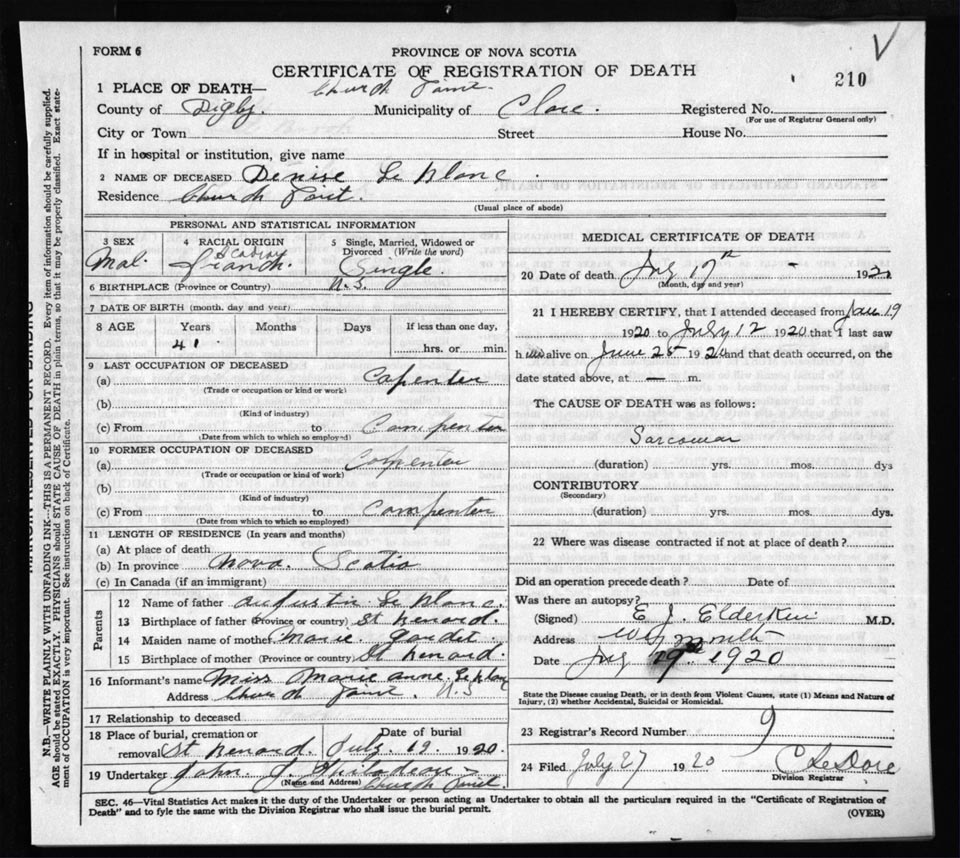 FORM 6
PROVINCE OF NOVA SCOTIA
CERTIFICATE OF REGISTRATION OF DEATH
210
1 PLACE OF DEATH— Church Point.
County of Digby Municipality of Clare. Registered No.
(For use of Registrar General only)
City or Town Street House No.
If in hospital or institution, give name
2 NAME OF DECEASED Denise Le Blanc.
Residence Church Point.
(Usual place of abode)
PERSONAL AND STATISTICAL INFORMATION
3 SEX
Mal.
4 RACIAL ORIGIN
Acadian
French.
5 Single, Married, Widowed or Divorced (Write the word)
Single.
6 BIRTHPLACE (Province or Country) N.S.
7 DATE OF BIRTH (month, day and year)
8 AGE Years Months Days If less than one day,
41 hrs. or min.
9 LAST OCCUPATION OF DECEASED
(a) Capenter
(Trade or occupation or kind or work)
(b)
(Kind of industry)
(c) From to Compenter
(Date from which to which so employed)
10 FORMER OCCUPATION OF DECEASED
(a) Copenter
(Trade or occupation or kind of work)
(b)
(Kind of industry)
(c) From to Compenter
(Date from which to which so employed)
11 LENGTH OF RESIDENCE (In years and months)
(a) At place of death
(b) In province Nova. Scotia
(c) In Canada (if an immigrant)
Parents
12 Name of father Augustin Le Blanc.
13 Birthplace of father (Province or country) St Benard.
14 Maiden name of mother Marie. Gaudet.
15 Birthplace of mother (Province or country) St Benard.
16 Informant's name Miss Marie Anne LeBlanc
Address Church Point. N.S
17 Relationship to deceased
18 Place of burial, cremation or removal St Benard. Date of burial July. 19. 1920.
19 Undertaker John. J.
(Name and Address) Church Point.
MEDICAL CERTIFICATE OF DEATH
20 Date of death July 17th - 192
(Month, day and year)
21 I HEREBY CERTIFY, that I attended deceased from Jan 19
1920 to July 12 1920 that I last saw
h im alive on June 25 1920 and that death occurred, on the
date stated above, at — m.
The CAUSE OF DEATH was as follows:
Sarcomar
(duration) yrs. mos. dys
CONTRIBUTORY
(Secondary)
(duration) yrs. mos. dys.
22 Where was disease contracted if not at place of death?
Did an operation precede death? Date of
Was there an autopsy?
(Signed) E J. Elderkin M.D.
Address Weymouth
Date July 19th 1920
State the Disease causing Death, or in death from Violent Causes, state (1) Means and Nature of Injury, (2) whether Accidental, Suicidal or Homicidal.
23 Registrar's Record Number 9
24 Filed July 27 1920
Division Registrar
SEC. 46—Vital Statistics Act makes it the duty of the Undertaker or person acting as Undertaker to obtain all the particulars required in the "Certificate of Registration of
Death" and to fyle the same with the Division Registrar who shall issue the burial permit.
(OVER)
MARGIN RESERVED FOR BINDING
N.B.—WRITE PLAINLY WITH UNFADING INK—THIS IS A PERMANENT RECORD. Every item of information should be carefully supplied.
AGE should be stated EXACTLY. PHYSICIANS should STATE CAUSE OF DEATH in plain terms, so that it may be properly classified. Exact statement of OCCUPATION is very important. See instructions on back of Certificate.